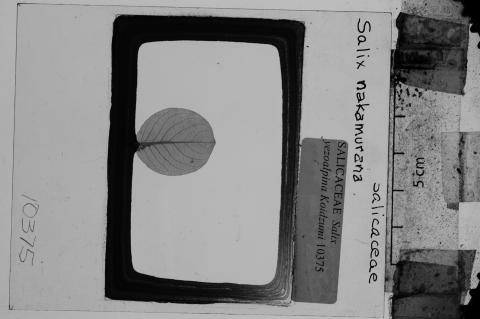 Salix nakamurana
salicaceae
SALICACEAE Salix
yezoalpina Koidzumi 10375
5cm
10375